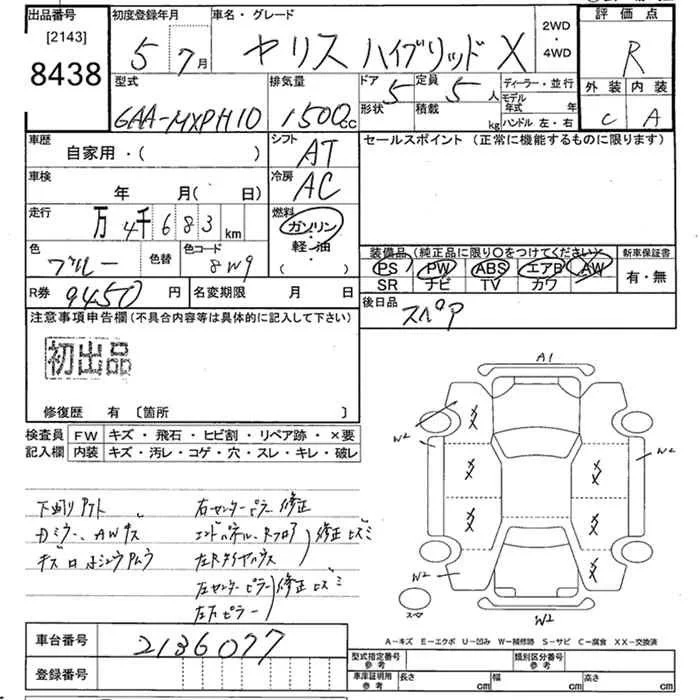 出品番号 初度登録年月 車名・グレード 2WD・4WD 評価点
[2143]
8438
5年7月 ヤリス ハイブリッド X R
外装 内装
C A
型式 排気量 ドア 定員 ディーラー・並行
6AA-MXPH10 1500cc 5 5人
形状 積載 kg モデル年式 年
ハンドル 左・右
車歴 シフト セールスポイント (正常に機能するものに限ります)
自家用・( ) AT
車検 冷房
年 月( 日) AC
走行 燃料
万 4千683km ガソリン・軽油・( )
色 色替 色コード
ブルー 8W9
装備品 (純正品に限り○をつけてください) 新車保証書
PS PW ABS エアB AW 有・無
SR ナビ TV カワ
R券 名変期限 月 日 後日品
9450円 スペア
注意事項申告欄(不具合内容等は具体的に記入して下さい)
初出品
修復歴 有 〔箇所 〕
検査員記入欄 FW キズ・飛石・ヒビ割・リペア跡・×要
内装 キズ・汚レ・コゲ・穴・スレ・キレ・破レ
右センターピラー修正
エンドパネル、Rフロア
左Rタイヤハウス
修正ヒズミ
左センターピラー
修正ヒズミ
A1
W2
W2
W2
W2
スペ
A-キズ E-エクボ U-凹み W-補修跡 S-サビ C-腐食 XX-交換済
車台番号 2136077
登録番号
型式指定番号 参考 類別区分番号 参考
車庫証明用 参考 長さ cm 幅 cm 高さ cm